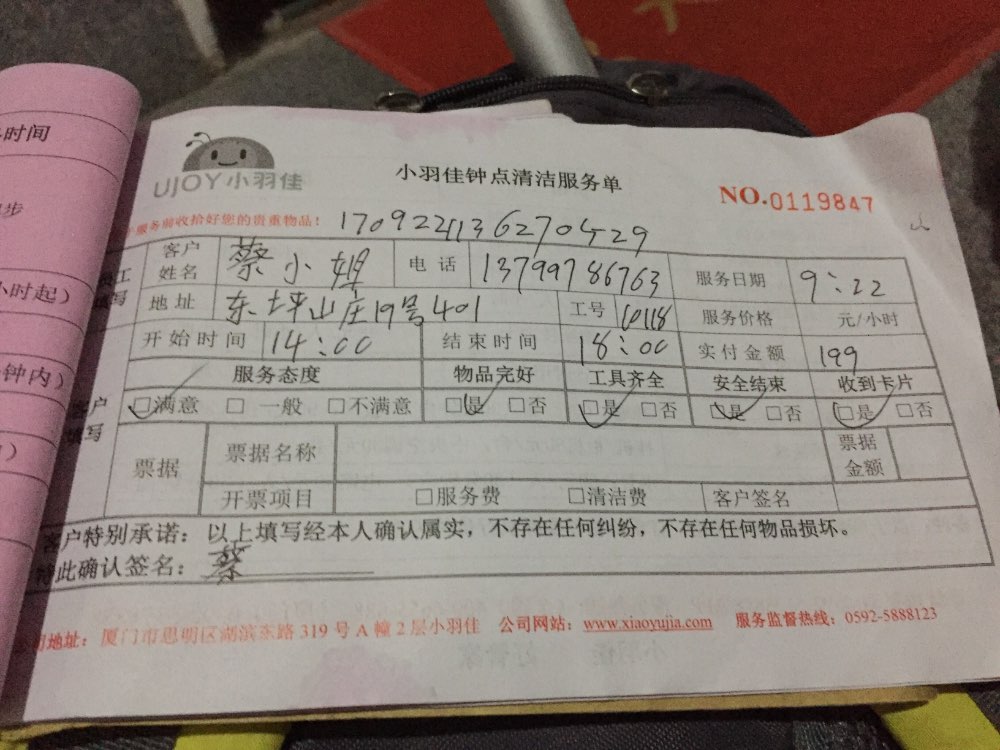 时间
步
小时起）
钟内）
）
UJOY小羽佳
小羽佳钟点清洁服务单
NO.0119847
服务前收拾好您的贵重物品！ 1709224136270429
客户姓名 蔡小姐 电话 13799786763 服务日期 9:22
地址 东坪山庄19号401 工号 服务价格 元/小时
开始时间 14:00 结束时间 18:00 实付金额 199
服务态度 物品完好 工具齐全 安全结束 收到卡片
填写 □满意 □一般 □不满意 □是 □否 □是 □否 □是 □否 □是 □否
票据 票据名称 票据金额
开票项目 □服务费 □清洁费 客户签名
客户特别承诺：以上填写经本人确认属实，不存在任何纠纷，不存在任何物品损坏。
特此确认签名：蔡
司地址：厦门市思明区湖滨东路 319 号 A 幢 2 层小羽佳 公司网站：www.xiaoyujia.com 服务监督热线：0592-5888123